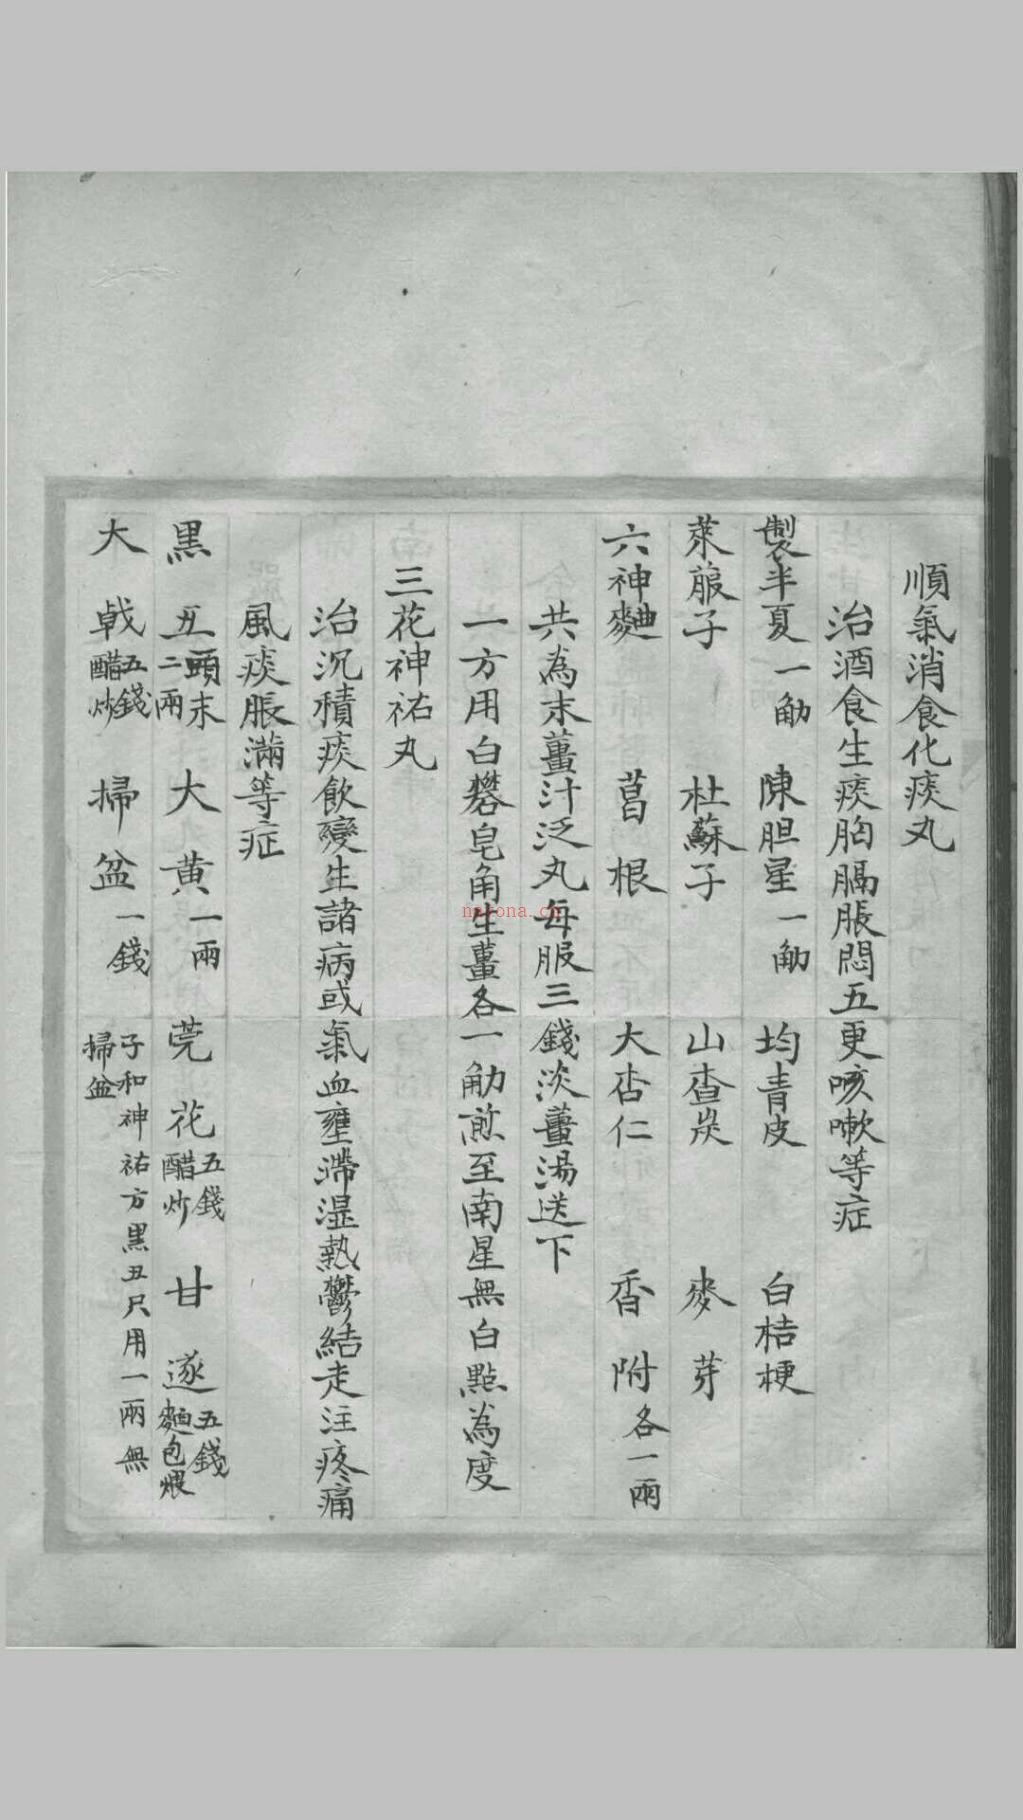 順氣消食化痰丸
治酒食生痰胸膈脹悶五更咳嗽等症
製半夏一觔 陳胆星一觔 均青皮 白桔梗
萊菔子 杜蘇子 山查炭 麥芽
六神麯 葛根 大杏仁 香附各一兩
共為末薑汁泛丸每服三錢淡薑湯送下
一方用白礬皂角生薑各一觔煎至南星無白點為度
三花神祐丸
治沉積痰飲變生諸病或氣血壅滯湿熱鬱結走注疼痛
風痰脹滿等症
黑丑頭末二兩 大黄一兩 芫花五錢醋炒 甘遂五錢麵包煨
大戟五錢醋炒 掃盆一錢 子和神祐方黑丑尺用一兩無掃盆
natona.cn